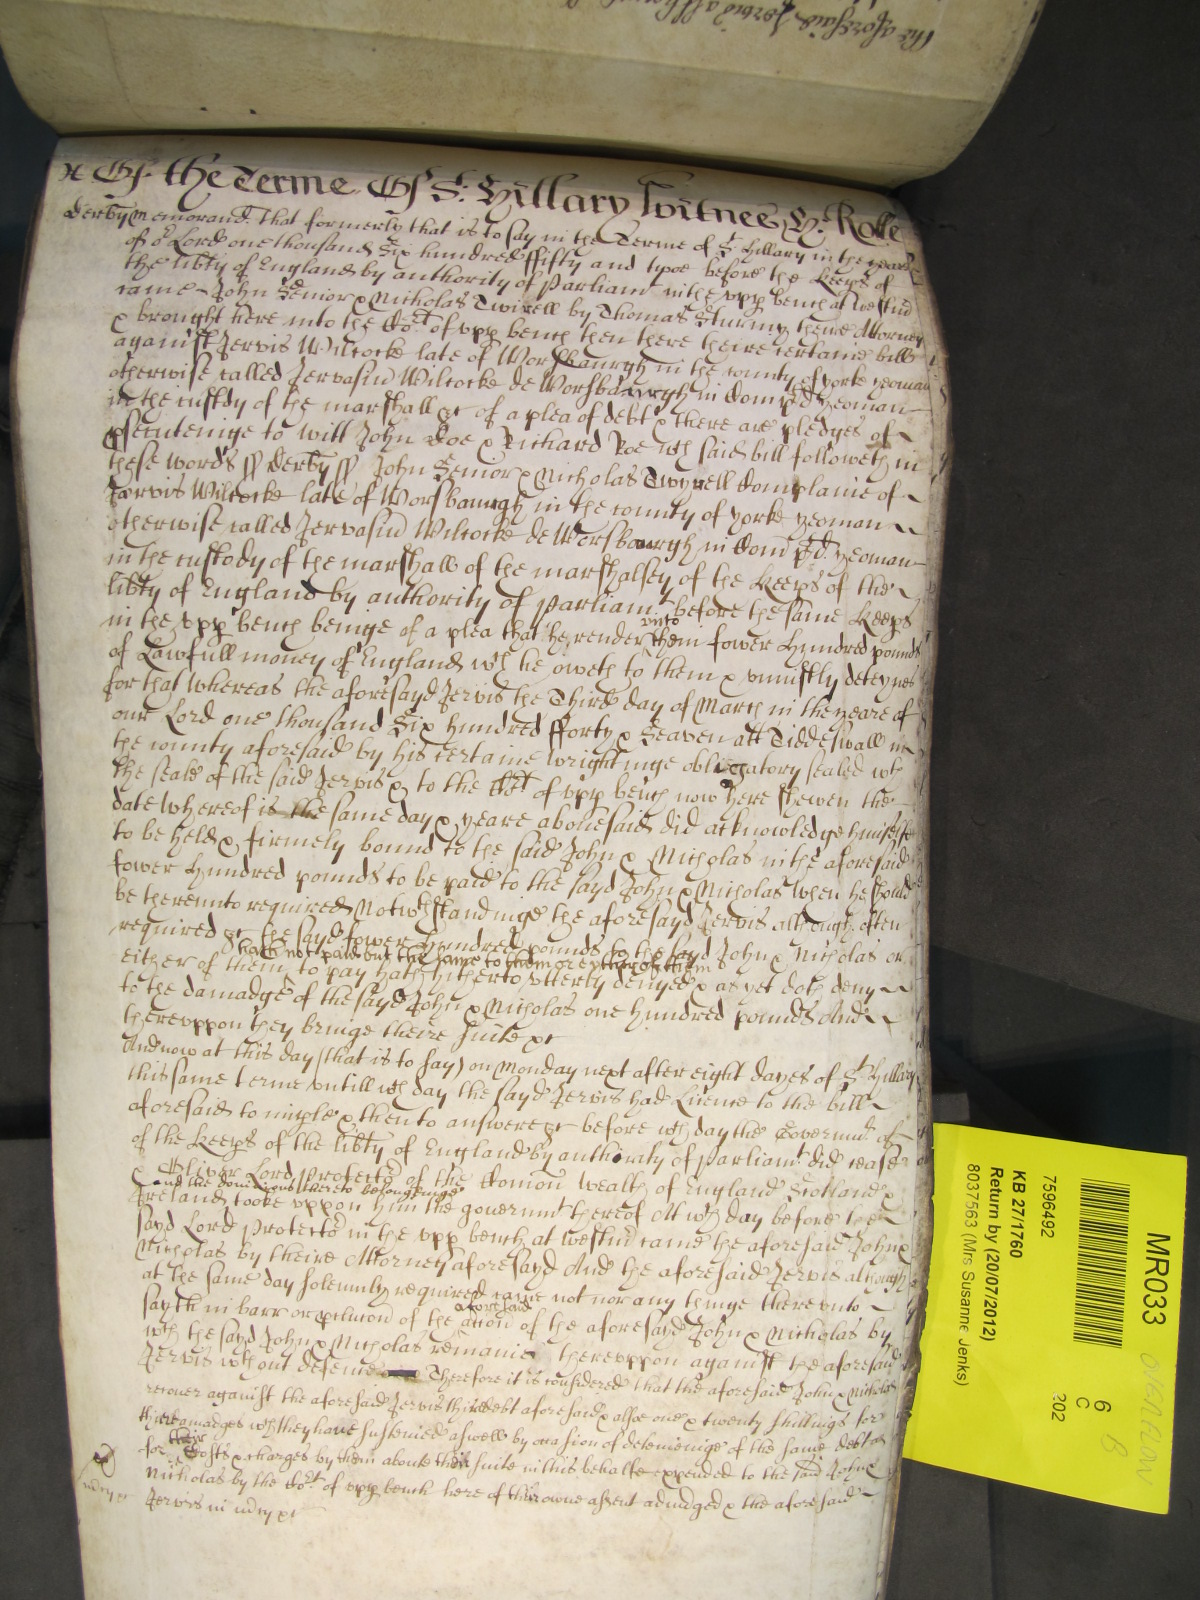 the aforesaid Jervis although
x Of the Terme Of St. Hillary Witnes H: Rolle
Derby Memorand. that formerly that is to say in the Terme of St. Hillary in the yeare
of or Lord one thousand Six hundred ffifty and twoe before the Keeps of
the libty of England by authority of Parliamt in the vpp bench at Westmr
came John Senior & Nicholas Twirell by Thomas Sturmy theire Attorney
& brought here into the Cort of vpp bench then there theire certaine bill
against Jervis Wilcocke late of Worsbaurgh in the county of yorke yeoman
otherwise called Jervasiu Wilcocke de Worsbaurgh in Com pd yeoman
in the custody of the marshall &c of a plea of debt & there are pledges of
psecuteinge to witt John Doe & Richard Roe wch said bill followeth in
these words ss Derby ss John Senior & Nicholas Twyrell Complaine of
Jarvis Wilcocke late of Worsbaurgh in the county of yorke yeoman
otherwise called Jervasiu Wilcocke de Worsbaurgh in Com pd. yeoman
in the custody of the marshall of the marshalsey of the Keeps of the
libty of England by authority of Parliamt before the same Keeps
in the vpp bench beinge of a plea that he render vnto them fower Hundred pounds
of Lawfull money of England wch he oweth to them & vniustly deteynes
for that Whereas the aforesayd Jervis the Third day of March in the yeare of
our Lord one thousand Six hundred fforty & Seaven att Tiddeswall in
the county aforesaid by his certaine wrightinge obligatory sealed wth
the seale of the said Jervis & to the Cort of vpp bench now here shewen the
date whereof is the same day & yeare abouesaid did acknowledge himselfe
to be held & firmely bound to the said John & Nicholas in the aforesaid
fower hundred pounds to be paid to the sayd John & Nicholas when he should
be therevnto required Notwthstandinge the aforesayd Jervis although often
required &c the sayd fower hundred pounds to the sayd John & Nicholas or
hath not paid but the same to them or eyther of them
either of them to pay hath hitherto vtterly denyed & as yet doth deny
to the damadge of the sayd John & Nicholas one hundred pounds And
therevppon they bringe theire suite &c
And now at this day (that is to say) on Monday next after eight dayes of St. Hillary
this same terme vntill wch day the sayd Jervis had Licence to the bill
aforesaid to imple & then to answere &c before wch day the Governmt.
of the Keeps of the libty of England by authority of Parliamt. did cease
& Oliver Lord Protector of the Comon wealth of England Scotland &
and the dominions thereto belonginge
Ireland tooke vppon him the governmt thereof At wch day before the
sayd Lord Protector in the vpp bench at Westmr came the aforesaid John &
Nicholas by theire Attorney aforesayd And the aforesaid Jervis although
at the same day solemnly required came not nor any thinge therevnto
sayth in barr or preclution of the accon aforesaid of the aforesayd John & Nicholas by
wch the sayd John & Nicholas remaine therevppon against the aforesaid
Jervis wthout defence Therefore it is considered that the aforesaid John & Nicholas
recouer against the aforesaid Jervis their debt aforesaid & alsoe one & twenty shillings for
their damadges wch they haue susteined aswell by occasion of deteineinge of the same debt as
for their Costs & charges by them aboute their suite in this behalfe expended to the said John &
Nicholas by the Cort. of vpp bench here of their owne assent adiudged & the aforesaid
Jervis in mcy &c
mcy &c
MR033
6
C
202
7596492
KB 27/1760
Return by (20/07/2012)
8037563 (Mrs Susanne Jenks)